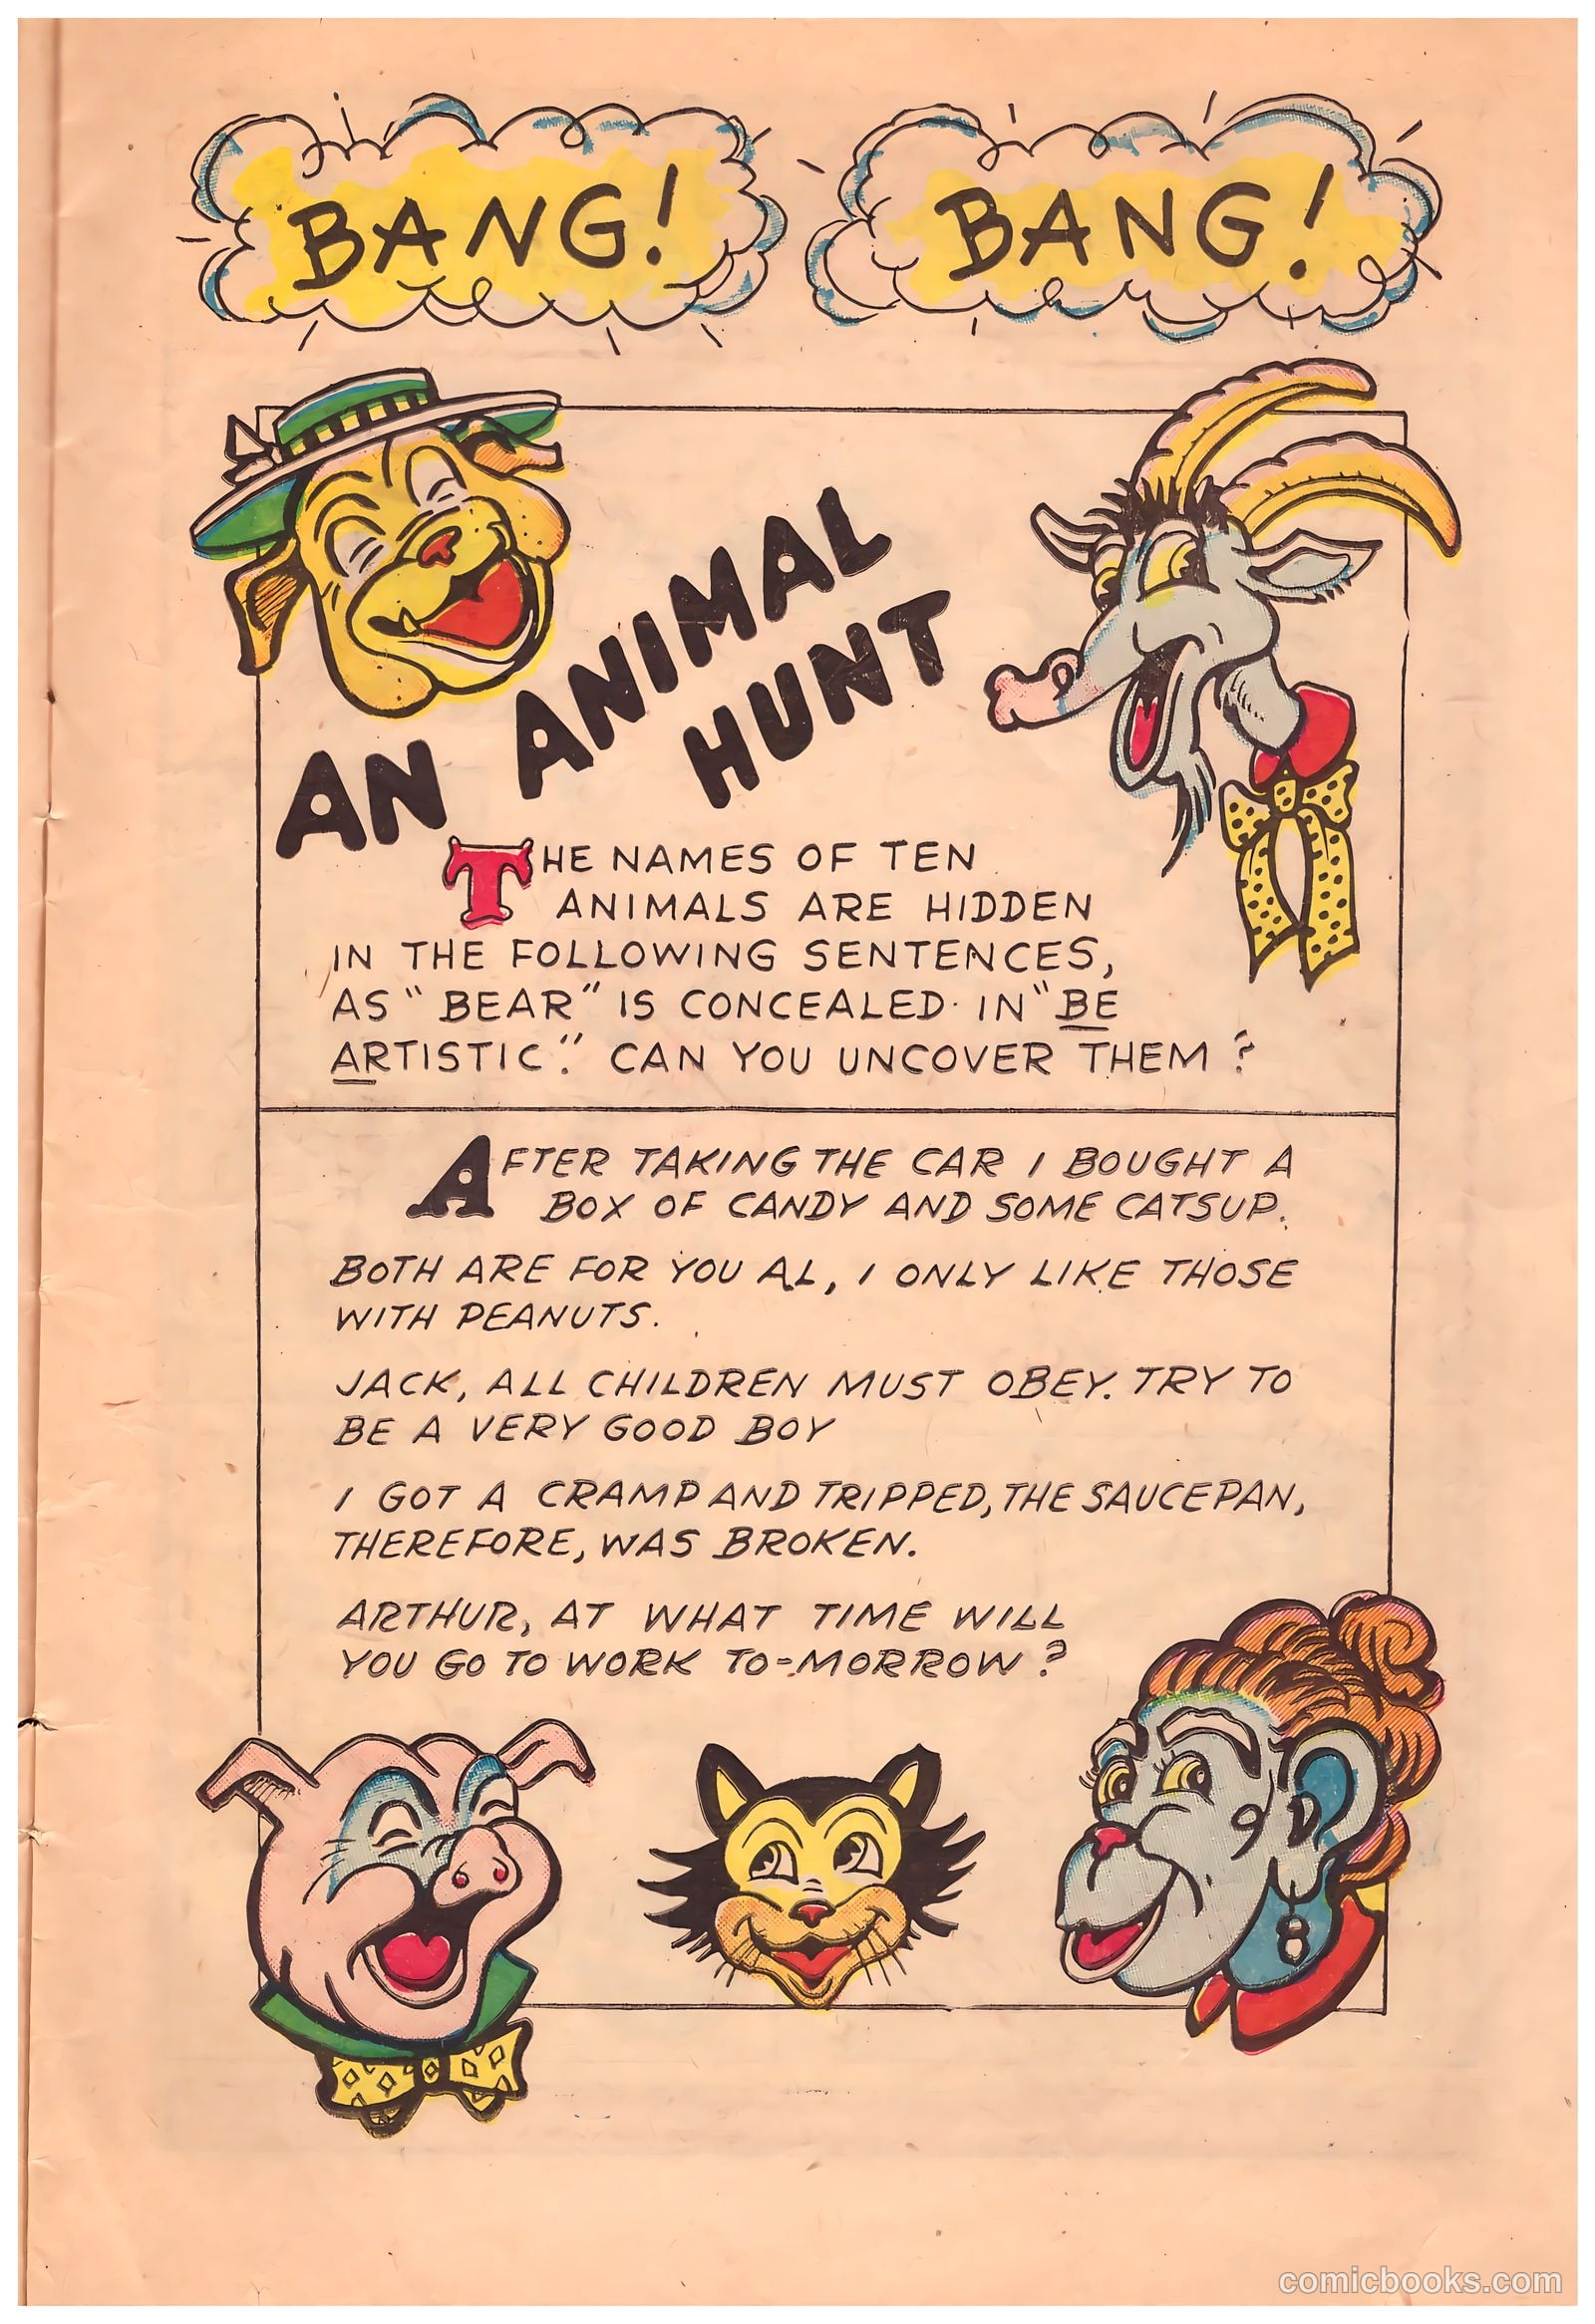 BANG! BANG!
AN ANIMAL
HUNT
THE NAMES OF TEN
ANIMALS ARE HIDDEN
IN THE FOLLOWING SENTENCES,
AS "BEAR" IS CONCEALED IN "BE
ARTISTIC." CAN YOU UNCOVER THEM?
AFTER TAKING THE CAR I BOUGHT A
BOX OF CANDY AND SOME CATSUP.
BOTH ARE FOR YOU AL, I ONLY LIKE THOSE
WITH PEANUTS.
JACK, ALL CHILDREN MUST OBEY. TRY TO
BE A VERY GOOD BOY
I GOT A CRAMP AND TRIPPED, THE SAUCEPAN,
THEREFORE, WAS BROKEN.
ARTHUR, AT WHAT TIME WILL
YOU GO TO WORK TO-MORROW?
comicbooks.com